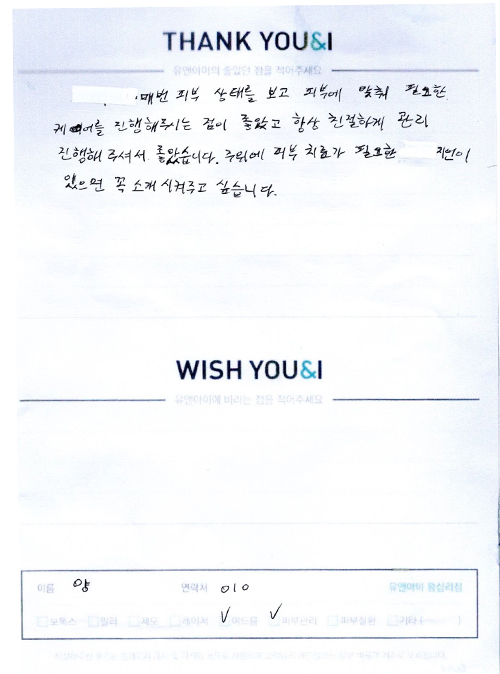 THANK YOU&I
유앤아이의 좋았던 점을 적어주세요
매번 피부 상태를 보고 피부에 맞춰 필요한
케어를 진행해주시는 점이 좋았고 항상 친절하게 관리
진행해 주셔서 좋았습니다. 주위에 피부 치료가 필요한 지인이
있으면 꼭 소개시켜주고 싶습니다.
WISH YOU&I
유앤아이에 바라는 점을 적어주세요
이름 양 연락처 010 유앤아이 왕십리점
보톡스 필러 제모 레이저 여드름 피부관리 피부질환 기타 ( )